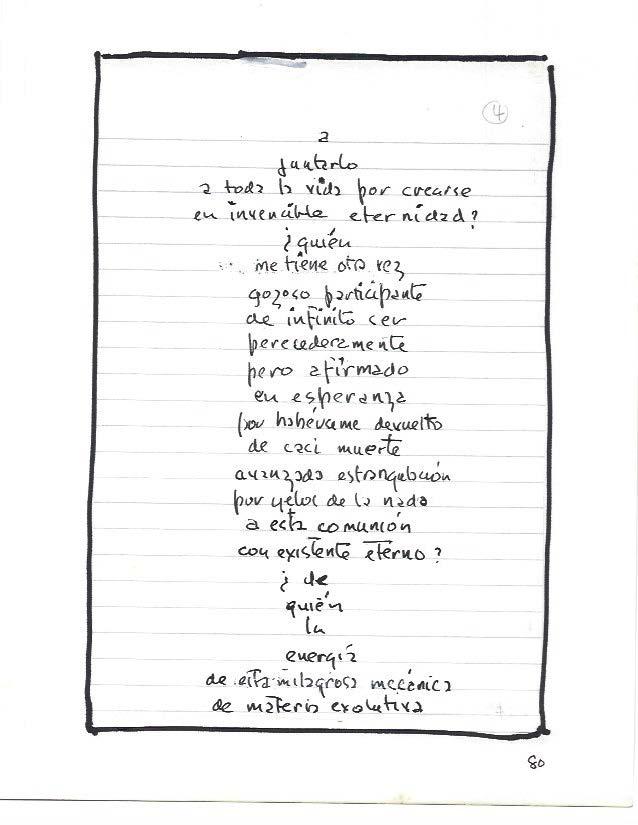 4
a
juntarlo
a toda la vida por crearse
en invencible eternidad?
¿quién
me tiene otra vez
gozoso participante
de infinito ser
perecederamente
pero afirmado
en esperanza
por habérseme devuelto
de casi muerte
avanzada estrangulación
por yelos de la nada
a esta comunión
con existente eterno?
¿de
quién
la
energía
de esta milagrosa mecánica
de materia evolutiva
80